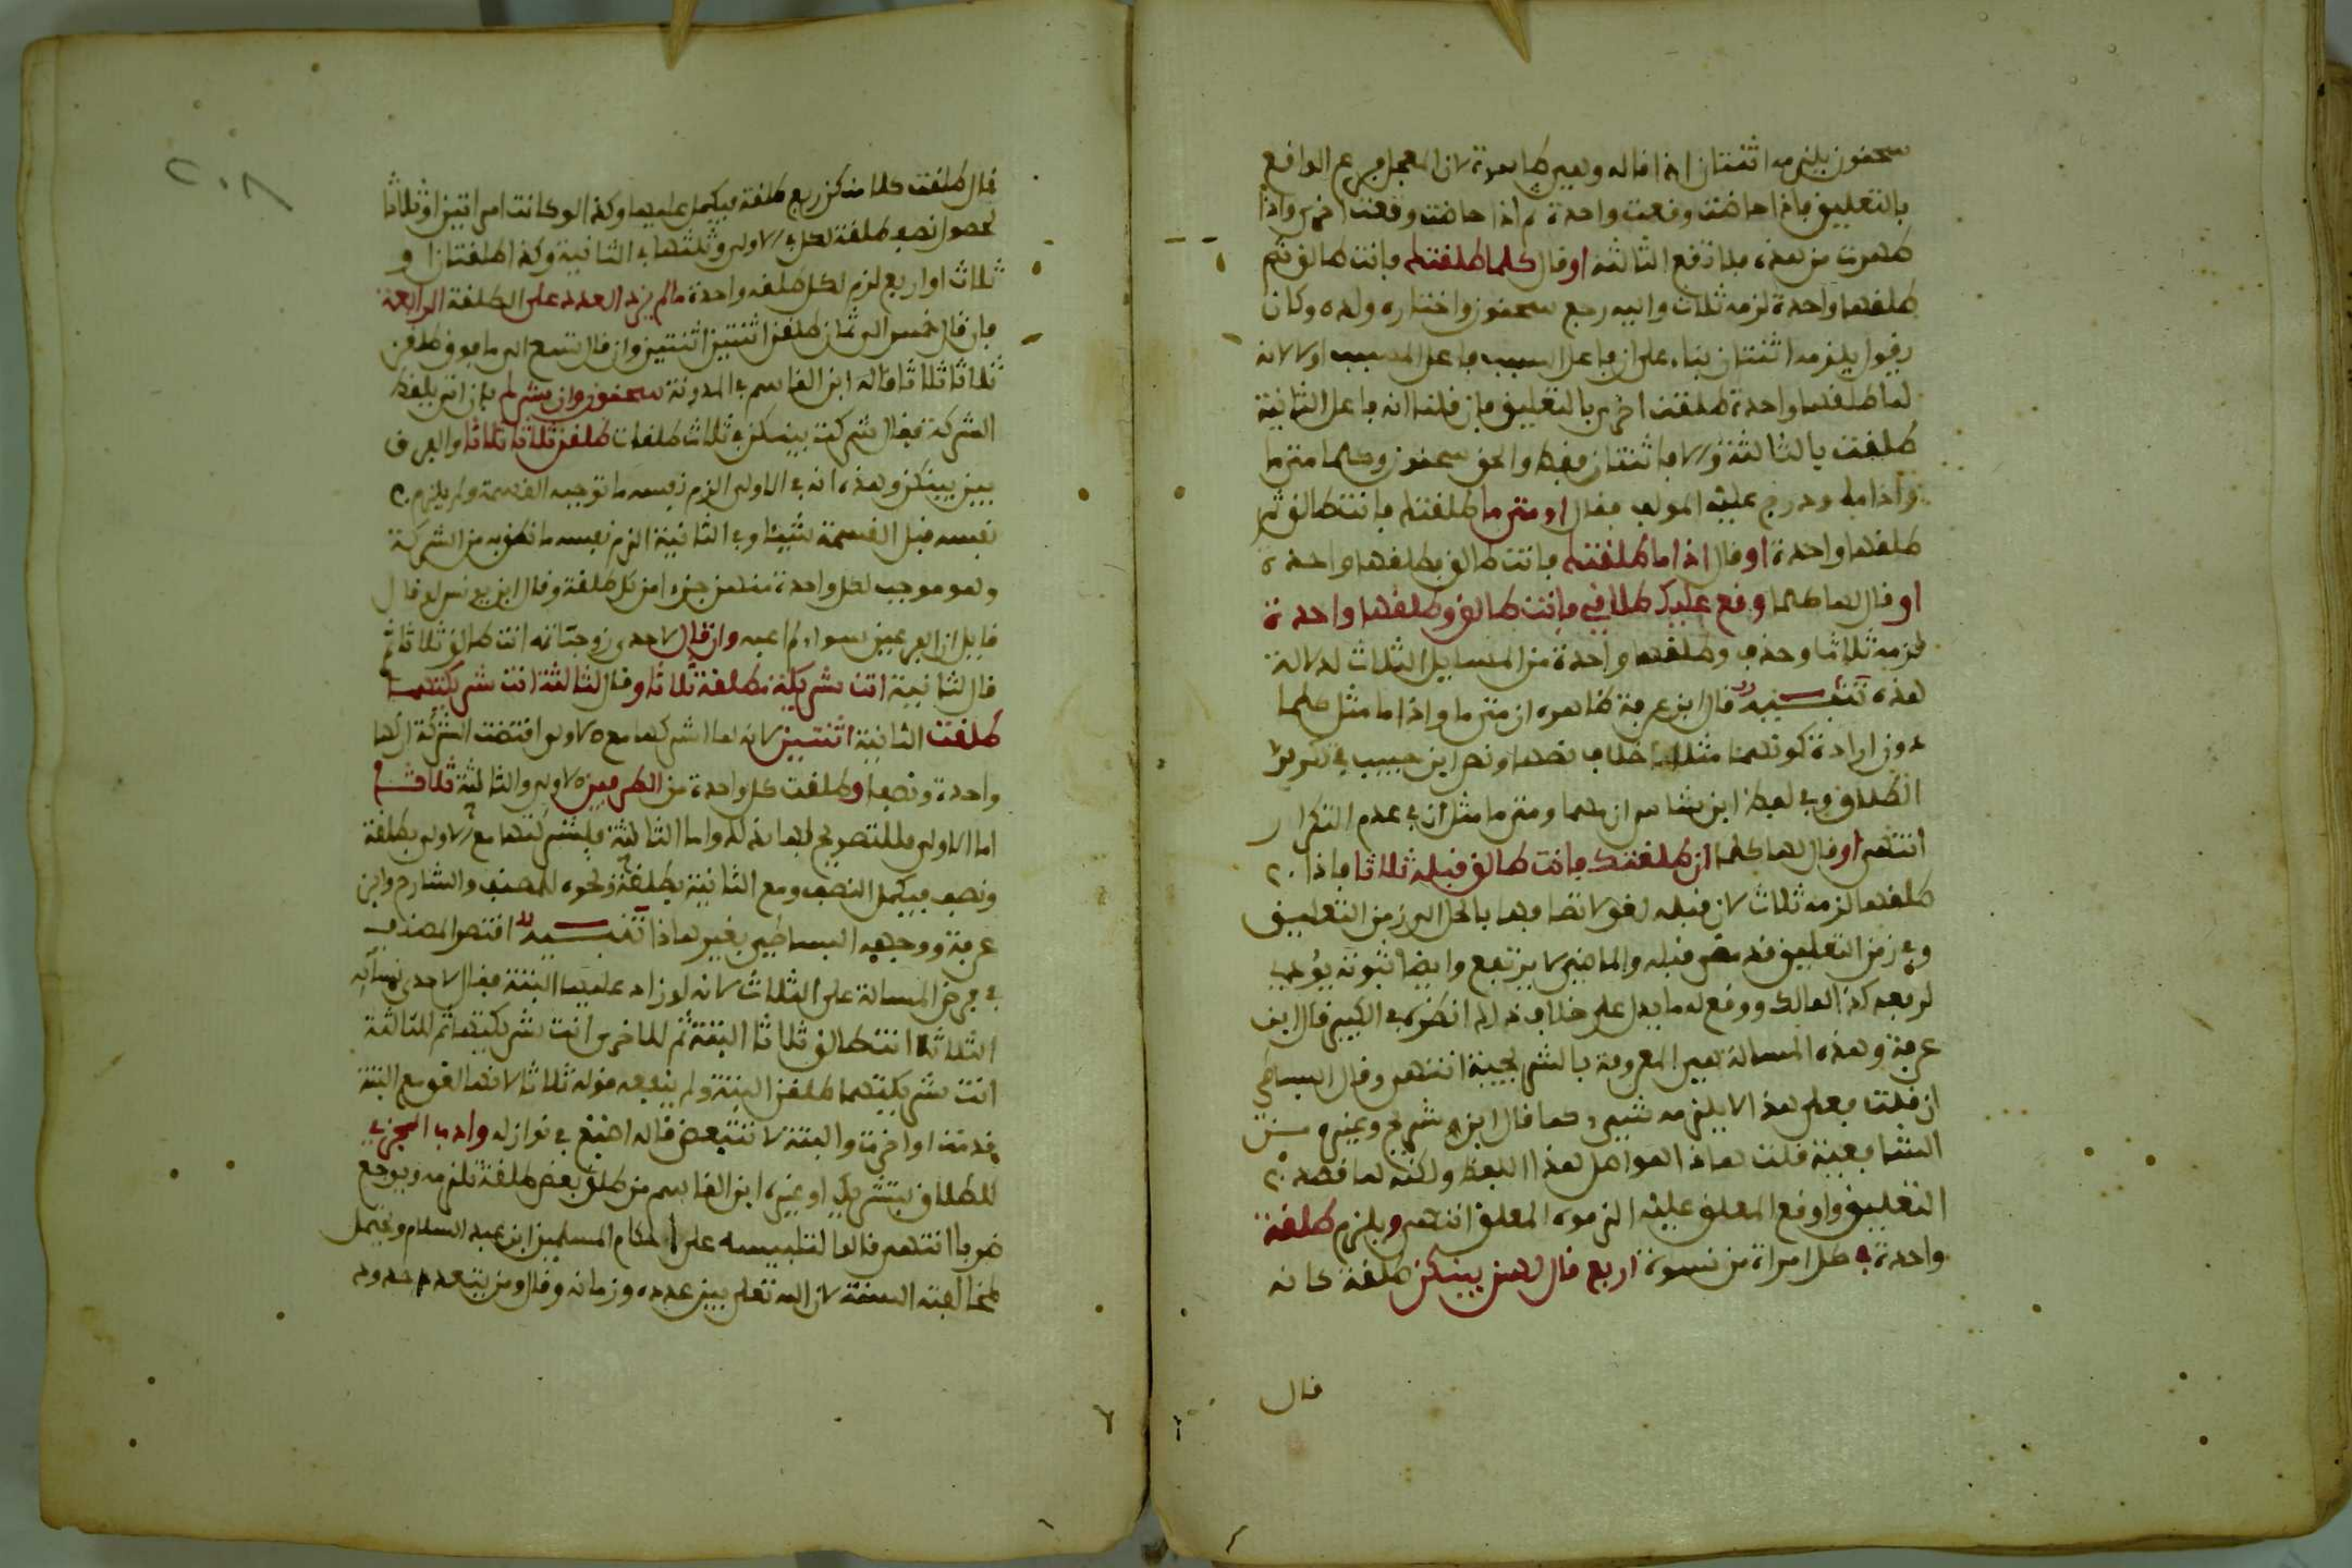 سحنون يلزمه اثنتان اذا قاله وهي طاهرة لان المعجل من يوم الواقع
بالتعليق فاذا حاضت وقعت واحدة واذا حاضت وقعت اخرى واذا
طهرت من هذه فلا تقع الثالثة او قال كلما طلقتك فانت طالق ثم
طلقها واحدة لزمه ثلاث واليه رجع سحنون واختاره ولده وكان
يقول يلزمه اثنتان بناء على ان فاعل السبب فاعل المسبب او لا لانه
لما طلقها واحدة طلقت اخرى بالتعليق فان قلنا انه فاعل الثانية
طلقت بالثالثة والا فاثنتان فقط والحق سحنون وكلما متى ما
واذا ما ودرج عليه المولف فقال او متى ما طلقتك فانت طالق ثم
طلقها واحدة او قال اذا ما طلقتك فانت طالق فطلقها واحدة
او قال لها كلما وقع عليك طلاقي فانت طالق وطلقها واحدة
لزمه ثلاثا وحذف وطلقها واحدة من المسايل الثلاث لدلالة
هذه تنبيه قال ابن عرفة ظاهره ان متى ما واذا ما مثل كلما
دون ارادة كونهما مثلها خلاف نصها ونص ابن حبيب في تكرير
الطلاق وفي لفظ ابن شاس ان مهما ومتى ما مثل ان في عدم التكرار
انتهى او قال لها كلما ان طلقتك فانت طالق قبله ثلاثا فاذا
طلقها لزمه ثلاث لان قبله لغو لاتصافها بالحل الى زمن التعليق
وفي زمن التعليق قد مضى قبله والماضي لا يرتفع وايضا ثبوته يوجب
لرفعه كذا لمالك ووقع له ما يدل على خلاف ذلك انظره في الكبير قال ابن
عرفة وهذه المسالة هي المعروفة بالشريجية انتهى وقال البساطي
ان قلت فعلى هذا لا يلزمه شيء كما قال ابن شريح وغيره من
الشافعية قلت هاذا هو اصل هذا اللفظ ولكنه لما قصد
التعليق واوقع المعلق عليه الزموه المعلق انتهى ويلزم طلقة
واحدة في كل امراة من نسوة اربع قال لهن بينكن طلقة كانه
قال
٢٠٨
قال طلقت كلا منكن ربع طلقة فيكمل عليهما وكذا لو كانت امراتين او ثلاثا
لحصول نصف طلقة لكل في الاولى وثلثها في الثانية وكذا طلقتان او
ثلاث او اربع لزم لكل طلقة واحدة مالم يزد العدد على الطلقة الرابعة
فان قال خمس الى ثمان طلقن اثنتين اثنتين وان قال تسع الى ما فوق طلقن
ثلاثا ثلاثا قاله ابن القاسم في المدونة سحنون وان شرك بان اتى بلفظ
الشركة فقال شركت بينكن في ثلاث طلقات طلقن ثلاثا ثلاثا والفرق
بين بينكن وهذه انه في الاولى الزم نفسه ما توجبه القسمة ولم يلزم
نفسه قبل القسمة شيئا وفي الثانية الزم نفسه ما نطق به من الشركة
وهو موجب لكل واحدة منهن جزءا من كل طلقة وقال ابن يونس لو قال
قايل ان الفرعين سواء ما اعبه وان قال لاحدى زوجاته انت طالق ثلاثا ثم
قال لثانية انت شريكة مطلقة ثلاثا وقال لثالثة انت شريكتهما
طلقت الثانية اثنتين لانه لما اشركها مع الاولى اقتضت الشركة ان لها
واحدة ونصفا وطلقت كل واحدة من الطرفين الاولى والثالثة ثلاثا
اما الاولى فللتصريح لها بذلك واما الثالثة فلشركتها مع الاولى بطلقة
ونصف فيكمل النصف ومع الثانية بطلقة ونحوه للمصنف والشارح وابن
عرفة ووجهه البساطي بغير هاذا تنبيه اقتصر المصنف
في فرض المسالة على الثلاث لانه لو زاد عليها البتة فقال لاحدى نسائه
الثلاثة انت طالق ثلاثا البتة ثم للاخرى انت شريكتها ثم للثالثة
انت شريكتهما طلقن البتة ولم ينفعه قوله ثلاثا لانها لغو مع البتة
قدمت او اخرت والبتة لا تتبعض قاله اصبغ في نوازله وادب المجزي
للطلاق بتشريك او غيره ابن القاسم من طلق بعض طلقة تلزمه ويوجع
ضربا انتهى قالها لتلبيسه على احكام المسلمين ابن عبد السلام ويحتمل
لمخالفته السنة لان الله تعالى بين عدده وزمانه وقال ومن يتعد حدود